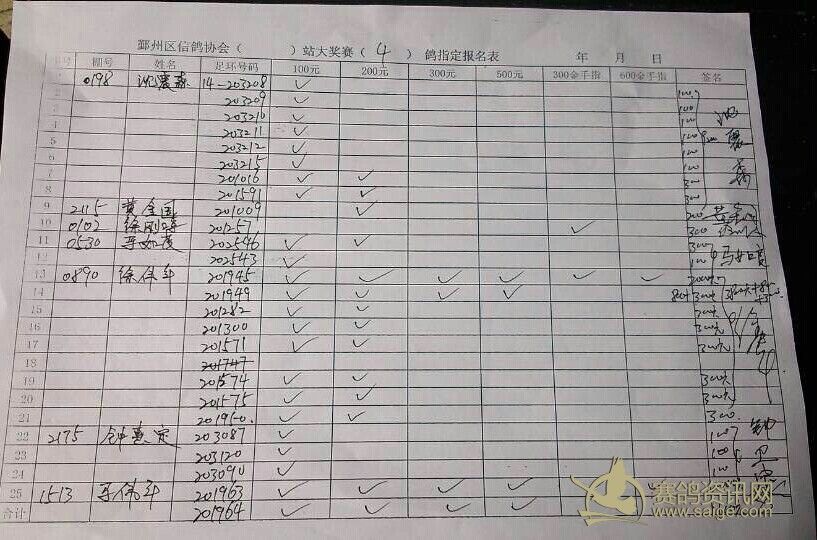 鄞州区信鸽协会（ ）站大奖赛（4）鸽指定报名表 年 月 日
棚号 姓名 足环号码 100元 200元 300元 500元 300金手指 600金手指 签名
1 0198 14-203208 ✓
2 203209 ✓ 100
3 203210 ✓ 100
4 203211 ✓ 100
5 203212 ✓ 100
6 203215 ✓ 100
7 201016 ✓ ✓ 300
8 201591 ✓ ✓ 300
9 2115 黄金国 201009 ✓ 200
10 0102 201257 ✓ 300
11 0530 202546 ✓ ✓ 300
12 202543 ✓ 100
13 0890 徐伟年 201945 ✓ ✓ ✓ ✓ ✓ ✓
14 201949 ✓ ✓ ✓ ✓
15 201282 ✓ ✓ 300元
16 201300 ✓ ✓ 300元
17 201571 ✓ ✓ 300元
18 201747
19 201574 ✓ ✓ 300元
20 201575 ✓ ✓ 300元
21 201950. ✓ ✓ 300.
22 2175 203087 ✓ 100
23 203120 ✓ 100
24 203090 ✓ 100
25 1513 201963 ✓ ✓ ✓ ✓ ✓ ✓
合计 201964 ✓ ✓ ✓ ✓ ✓
赛鸽资讯网
www.saige.com